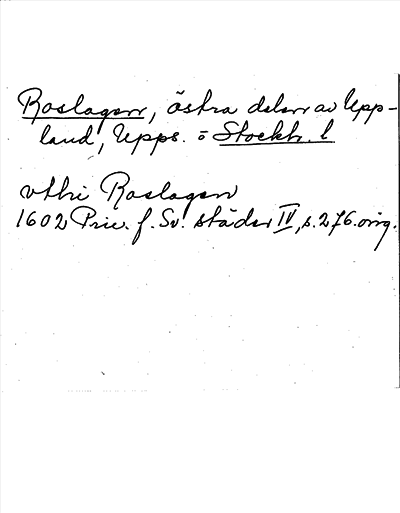 Roslagen, östra delen av Upp-
land, Upps. o Stockh. l
vthi Roslagen
1602 Priv. f. Sv. städer IV, s. 276. orig.